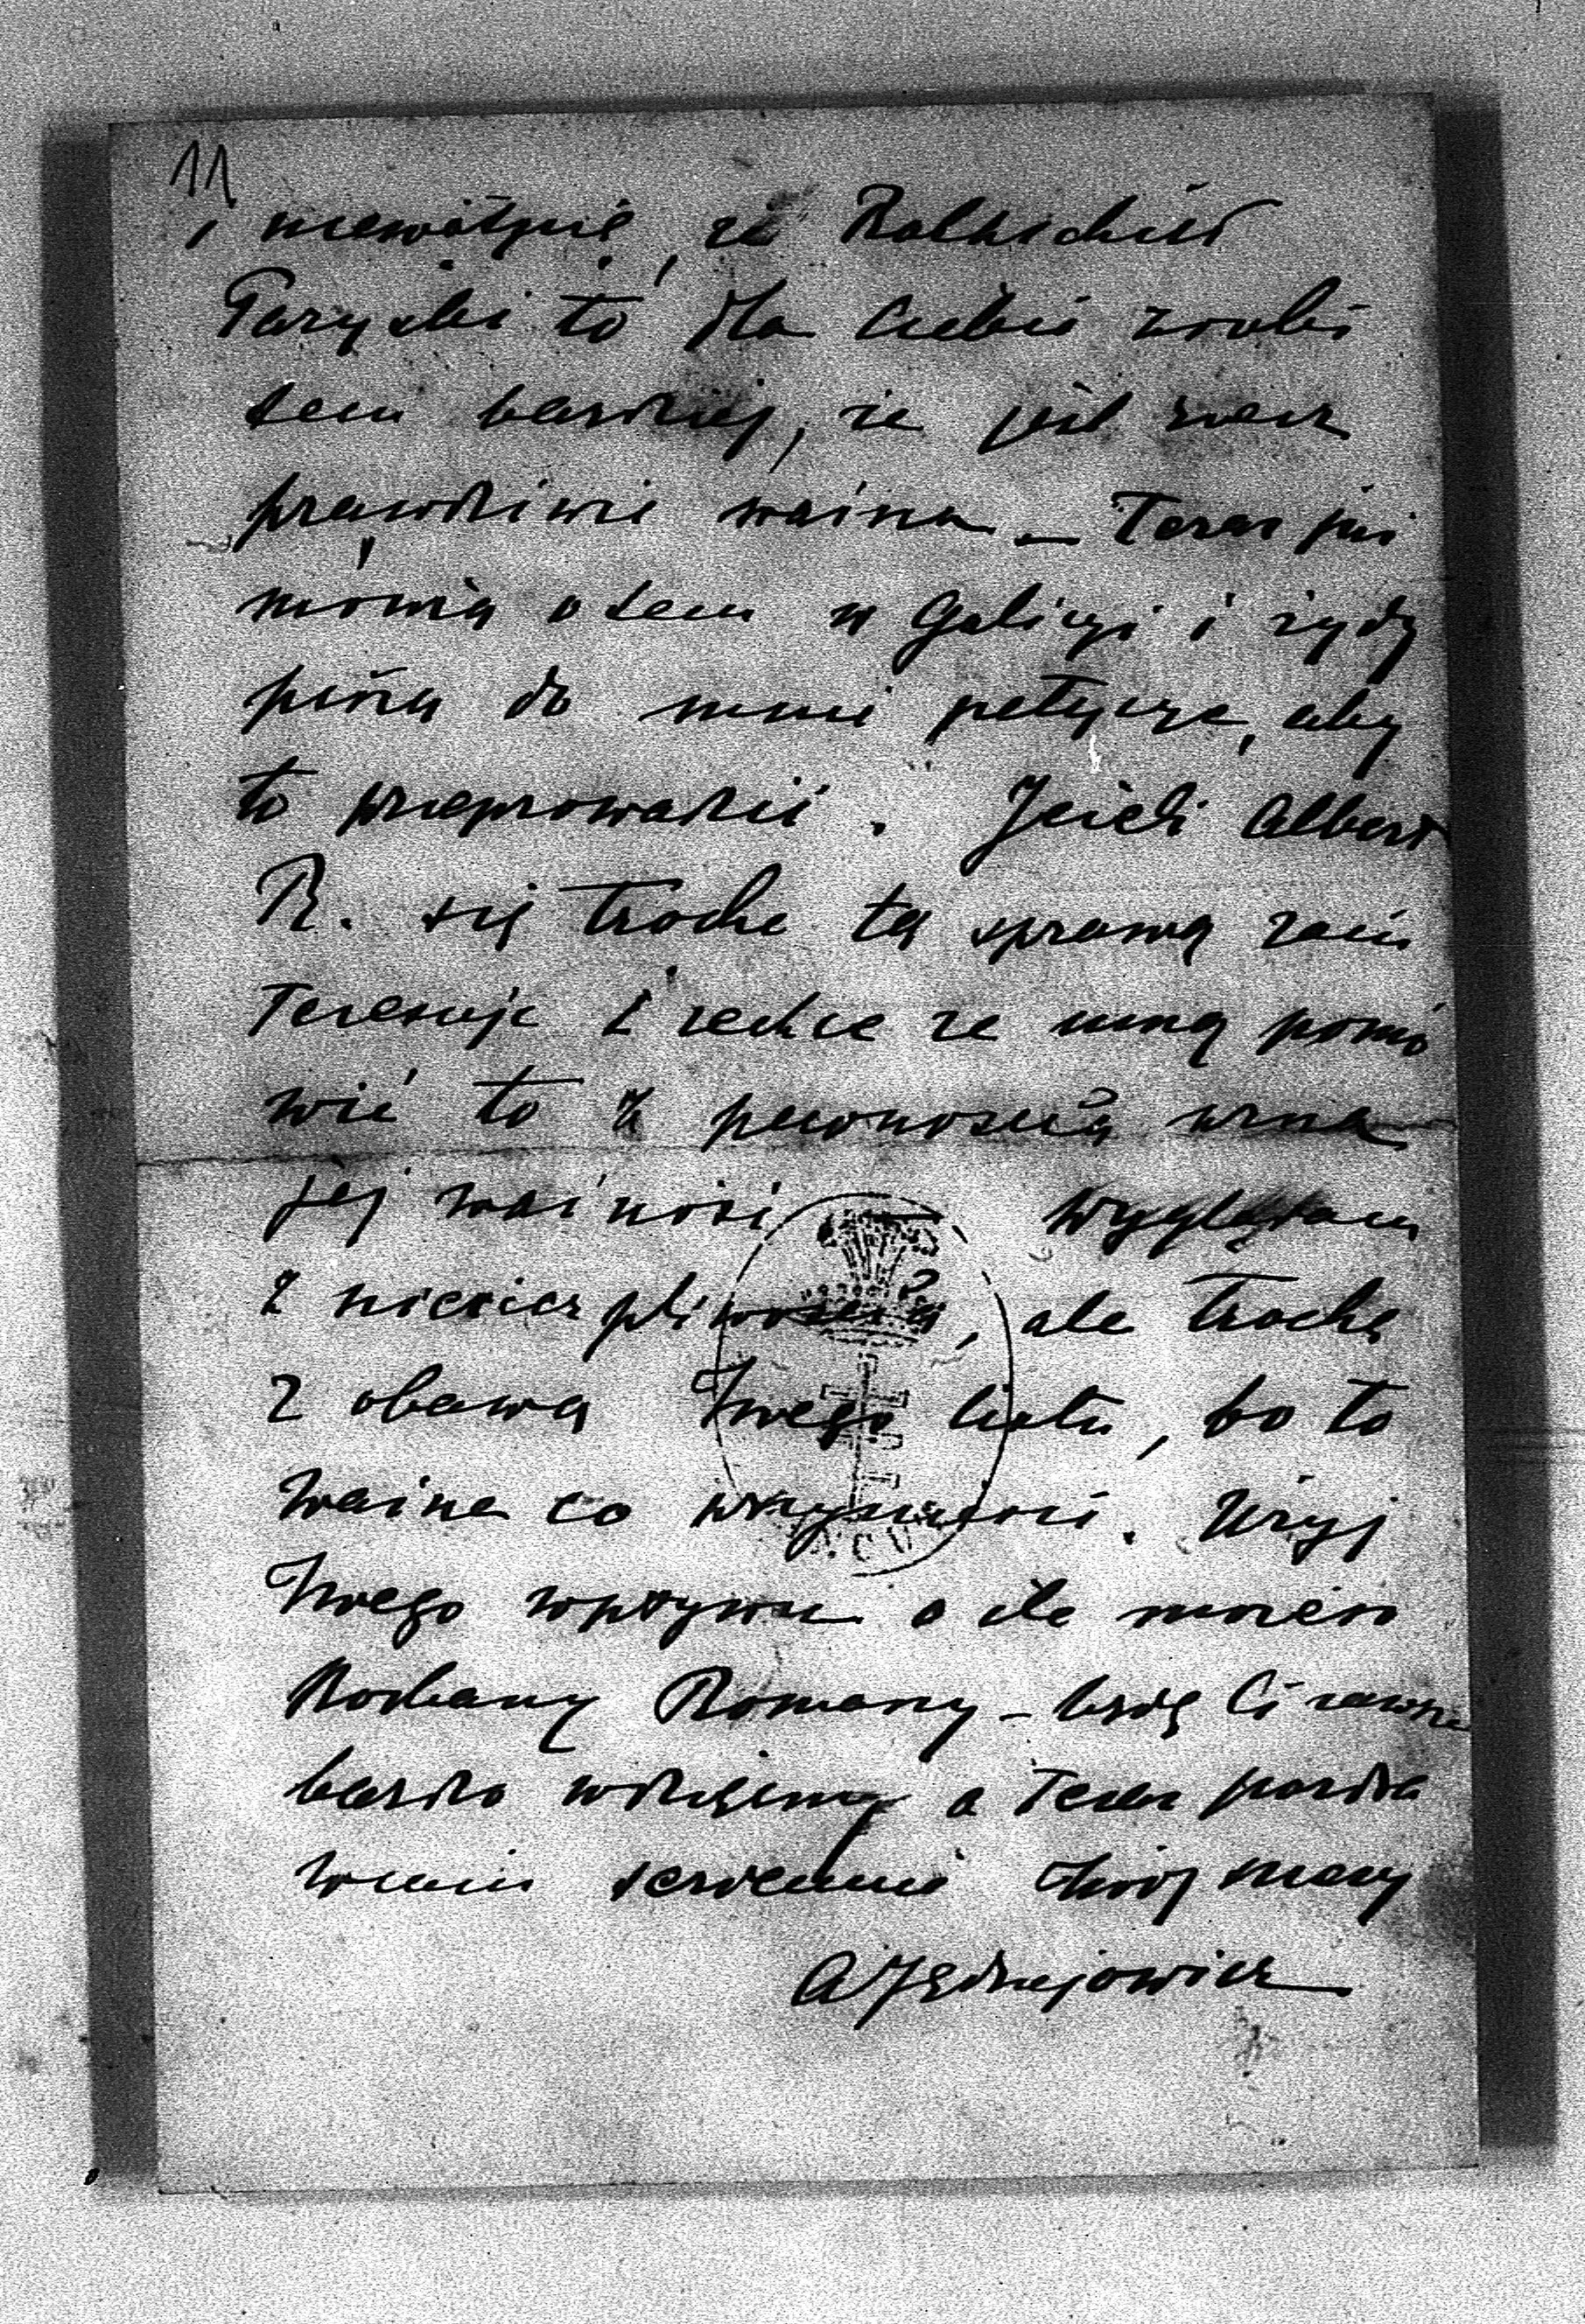 11
i niewątpię, że Rothschild
Paryski to dla Ciebie zrobi
tem bardziej, że jest rzecz
prawdziwie ważna – Teraz już
mówią o tem w Galicyi i żydy
piszą do mnie petycye, aby
to przeprowadzić. Jeżeli Albert
R. się trochę tą sprawą zain
teresuje i zechce ze mną pomó
wić to z pewnością uzna
jej ważność Wyglądam
z niecierpliwością, ale trochę
z obawą Twego listu, bo to
ważne co przyniesie. Użyj
Twego wpływu o ile możesz
Kochany Romany – będę Ci zawsze
bardzo wdzięczny a teraz pozdra
wiam serdecznie Twój stary
AJędrzejowicz